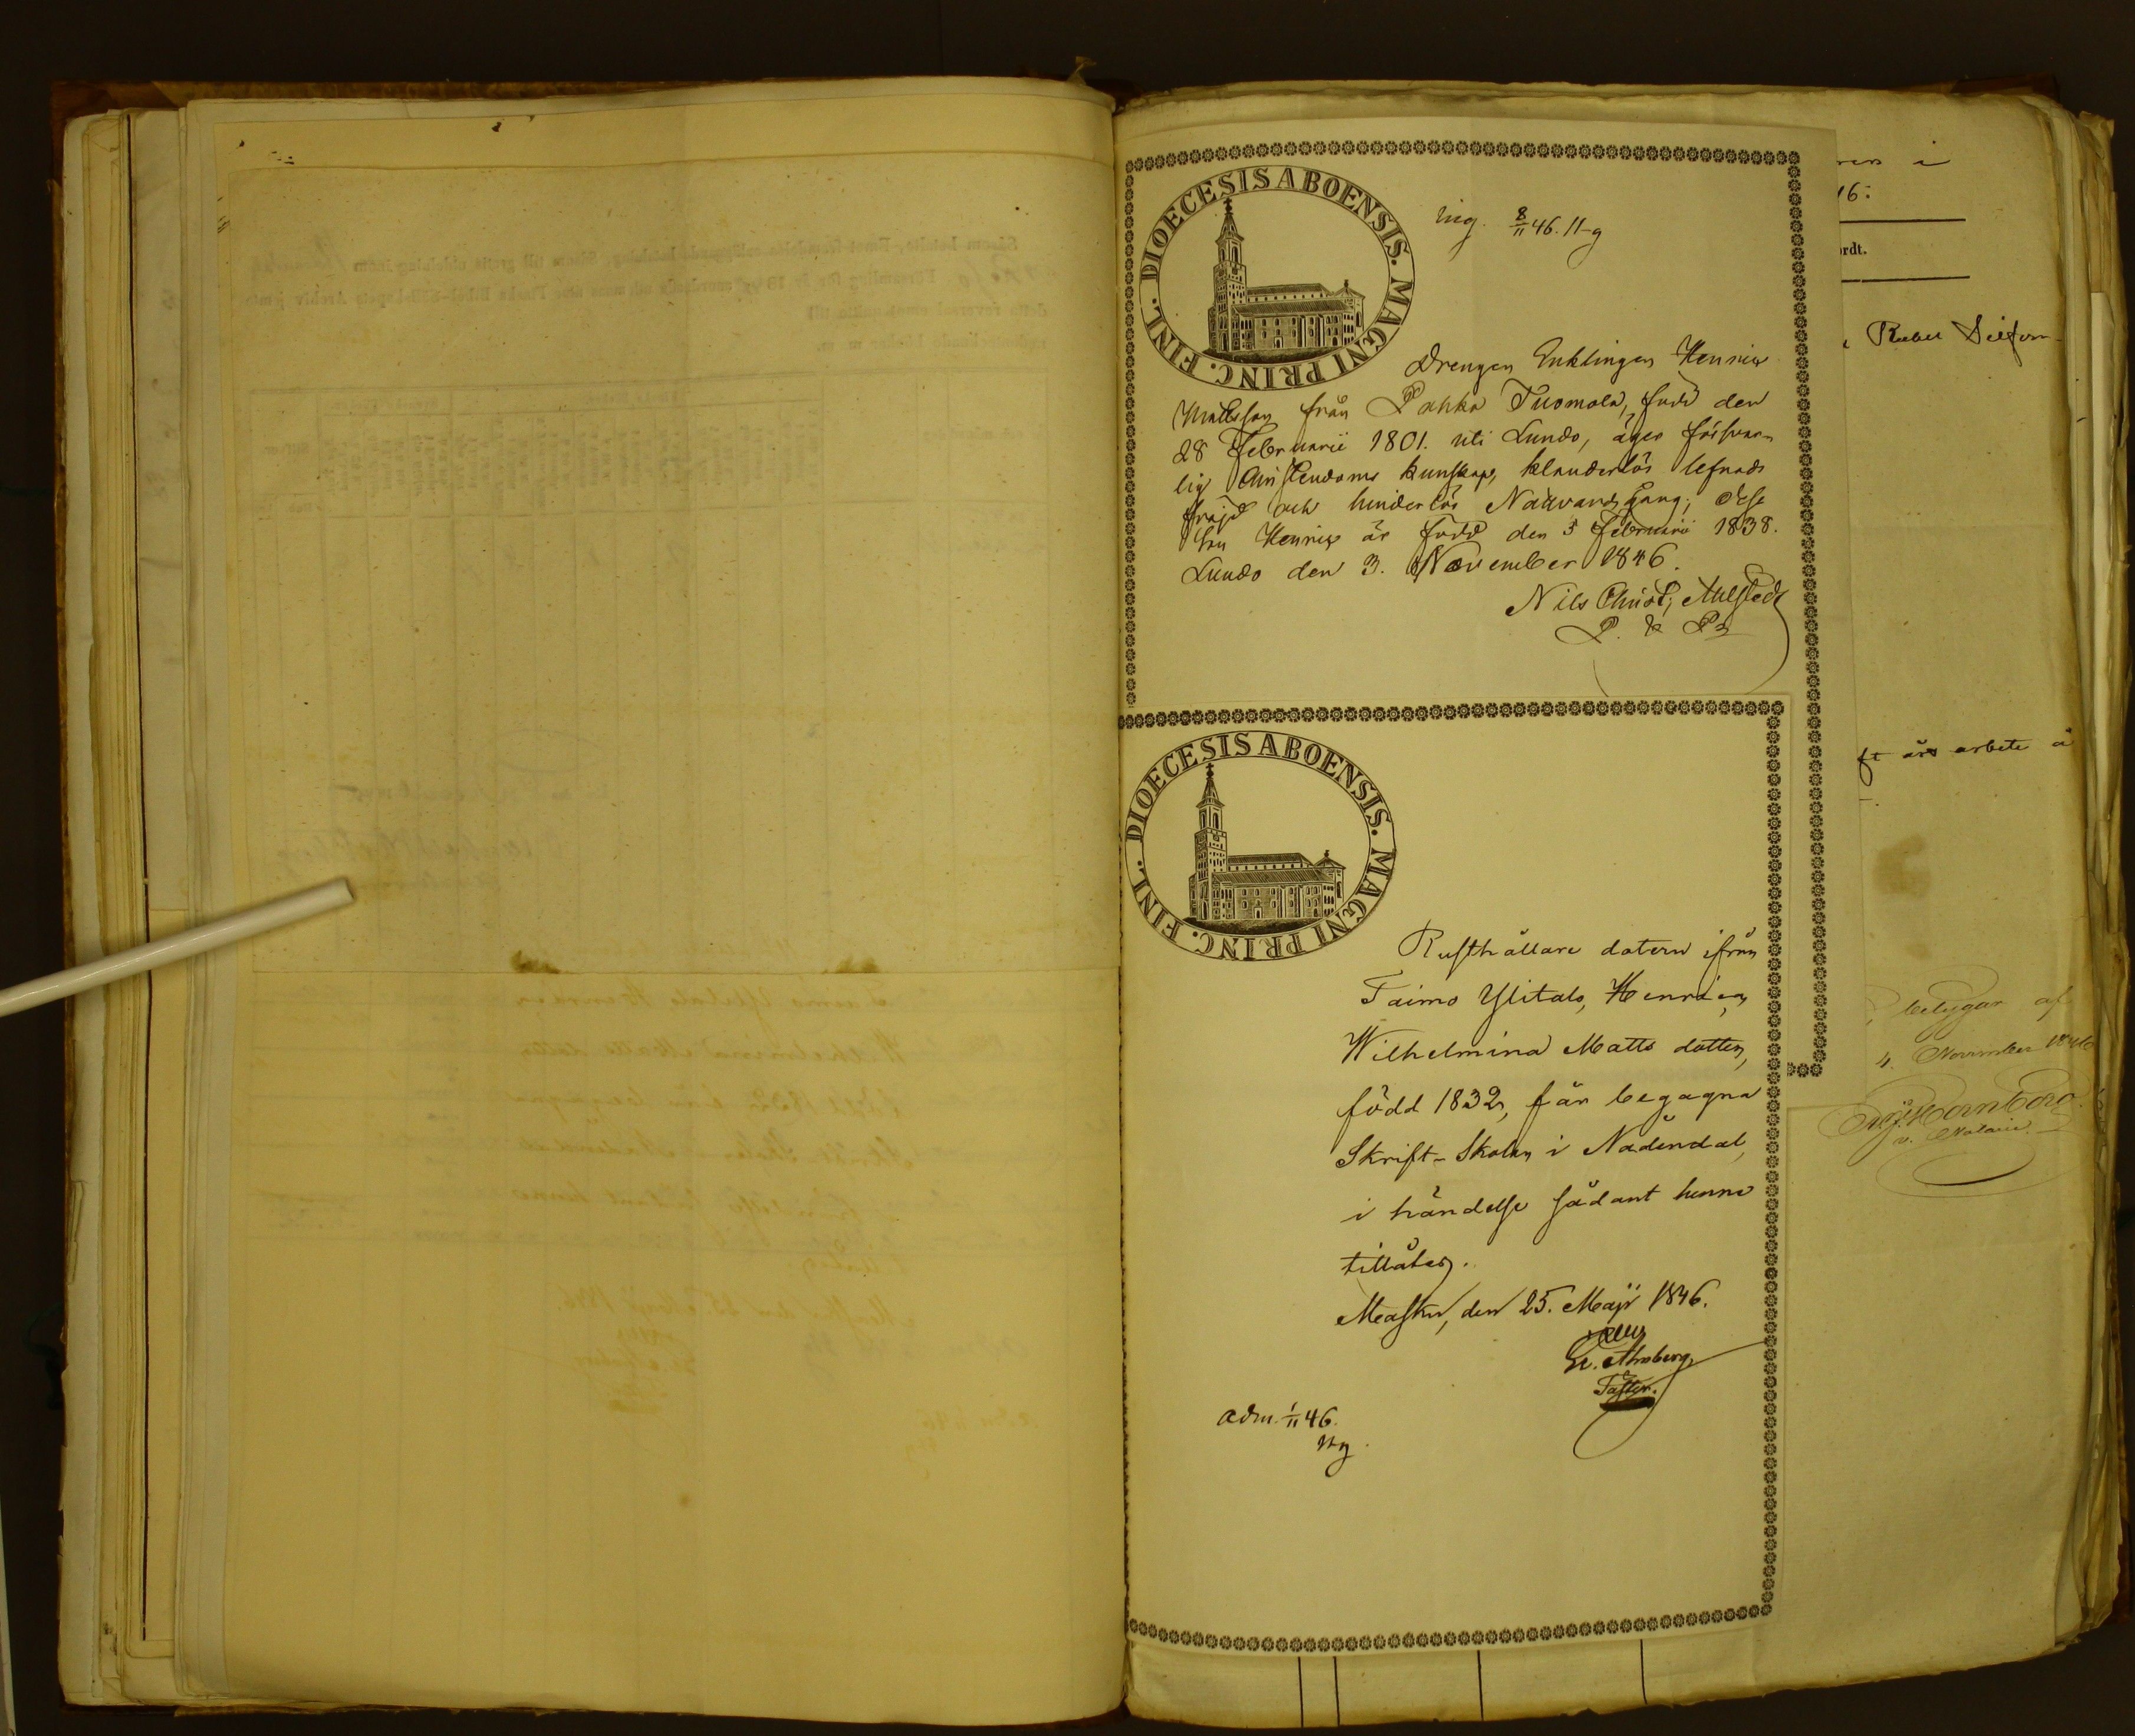 DIOECESIS ABOENSIS. MAGNI PRINC. FINL.
Ing. 8/11 46. 11-g
Drengen Enklingen Henric
Mattsson från Pahka Tuomola, född den
28 Februarii 1801. uti Lundo, äger försvar-
lig Christendoms kunskap, klanderlös lefnads
fräjd och hinderlös Nattvardsgång; dess
Son Henric är född den 5 Februarii 1838.
Lundo den 3. November 1846.
Nils Christ; Ahlstedt
P. & P
DIOECESIS ABOENSIS. MAGNI PRINC. FINL.
Rusthållare dotern ifrån
Taimo Ylitalo, Henrica
Wilhelmina Matts dotter,
född 1832, får begagna
Skrift-Skolan i Nådendal,
i händelse sådant henne
tillåtes.
Masku, den 25. Maji 1846.
Gr.
Pastor.
adm. 1/11 46.
ren i
16:
ordt.
ft års arbete å
betygar af
4. November 1846
v. Notarie.